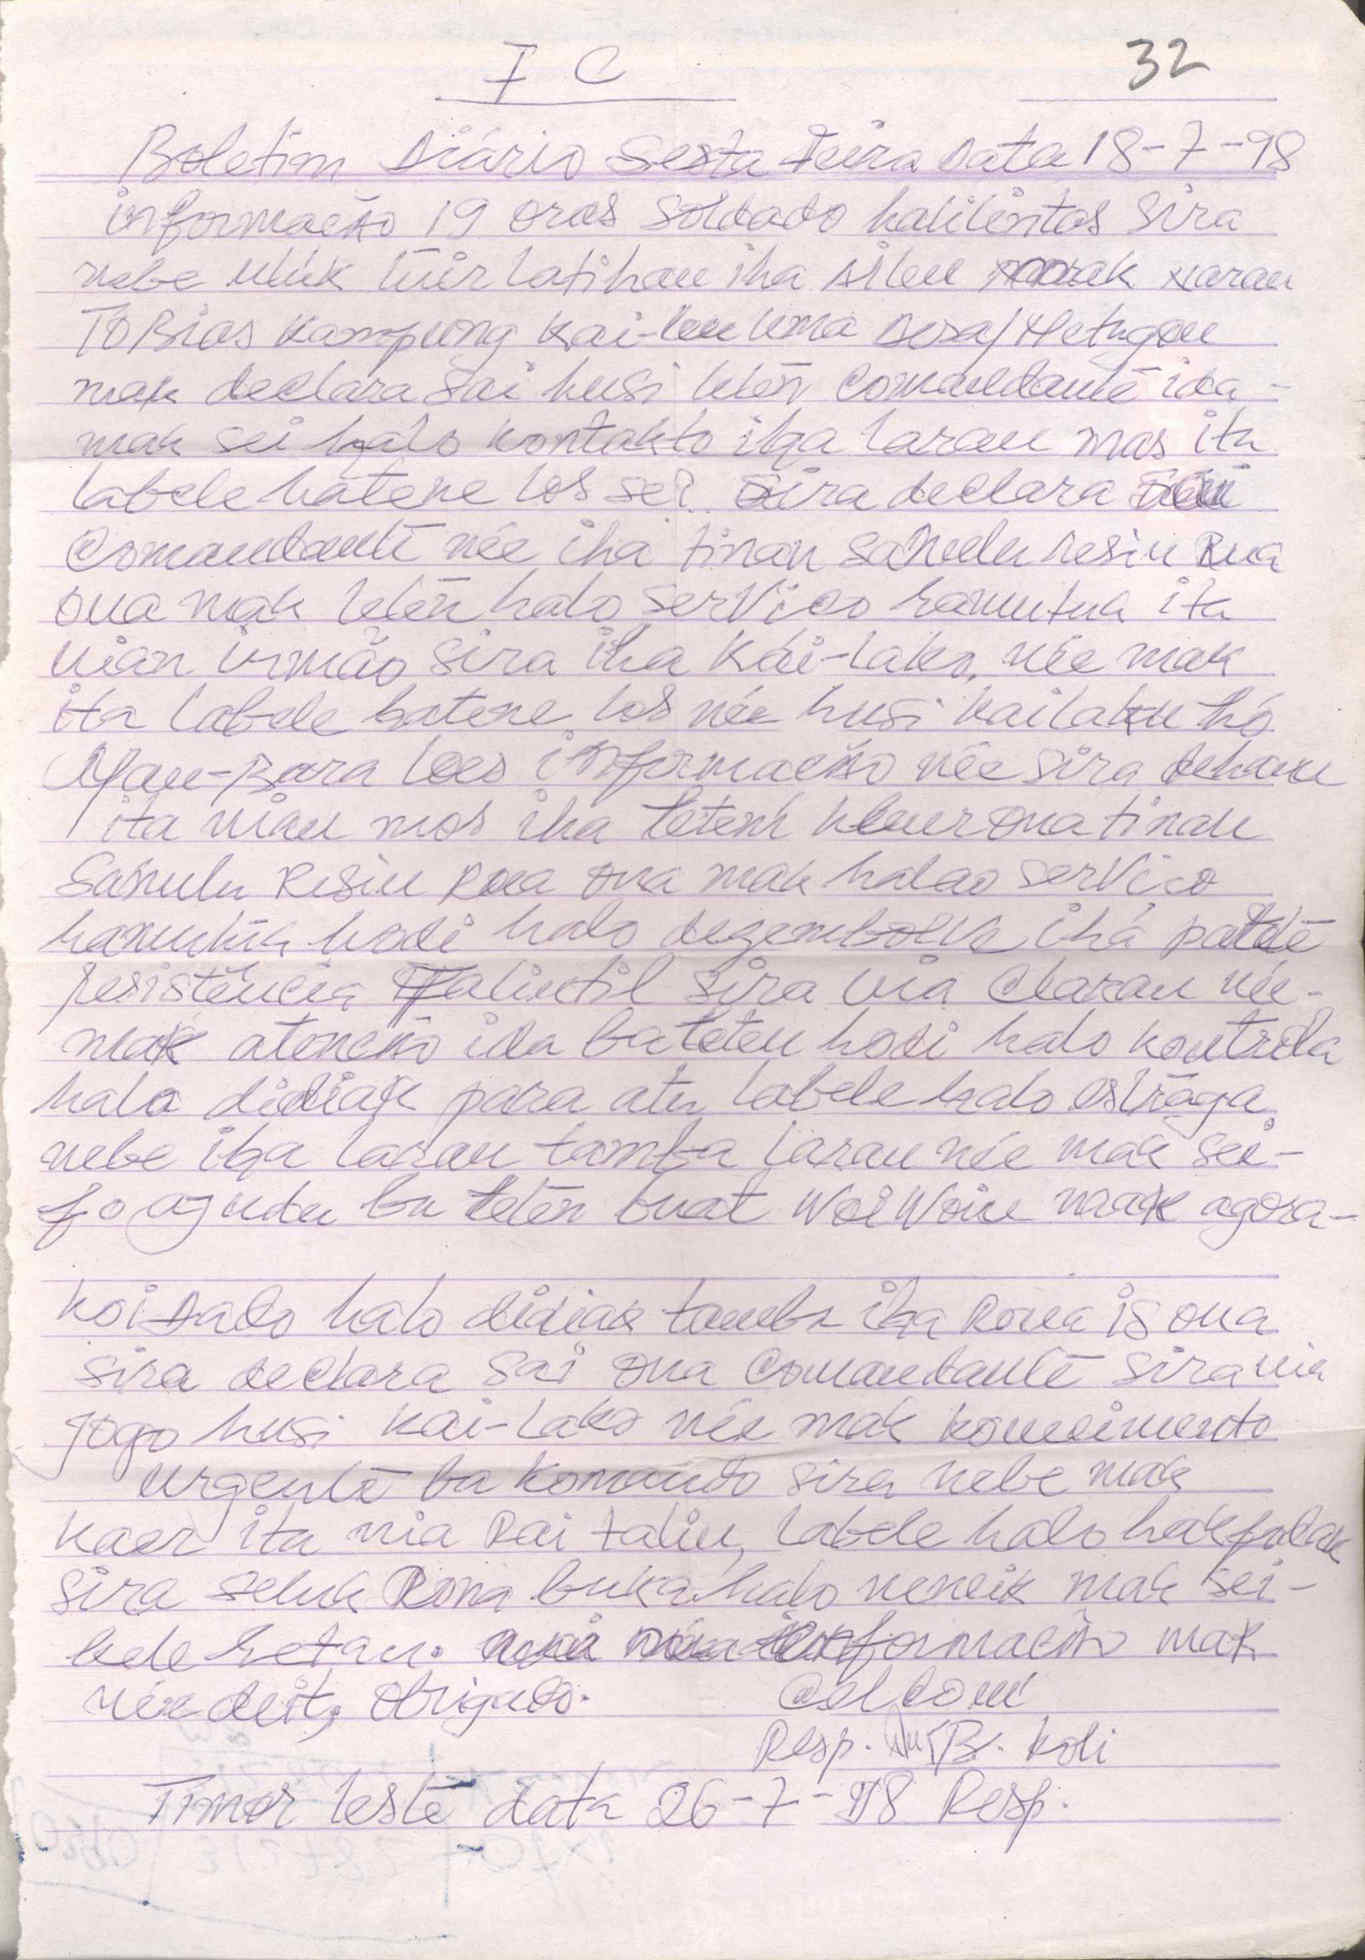 I C
32
Boletim Diário Sesta Feira Data 18-7-98
informacão 19 oras soldado halilintas sira
nebe uluk tuir latihan iha Aileu naran
TOBias Kampung Kai-leu uma Dosa/Hetugou
mak declara sai husi leten Comandante ida -
mak sei halo kontakto iha laran mas ita
labele hatene los sei. sira declara
Comandante née iha tinan sanulu resin Rua
ona mak leten halo servico hamutuk ita
nian irmão sira iha Kai-Lako, née mak
ita labele hatene los née husi kailaku hó
Mau-Bara loes informacão née sira dehan
ita nian mos iha leten kleur ona tinan
Sanulu Resin Rua ona mak halao servico
hamutuk hodi halo dezembolvi ihá
resistência Falintil sira nia Claran née -
mak atencão ida ba leten hodi halo kontrola
halo didiak para atu labele halo estraga
nebe iha laran tamba laran née mak sei -
fo ajuda ba leten buat WoiWoin maak agora -
koidado halo didiak tamba iha Rona is ona
sira declara sai ona Comandante sira nia
jogo husi Kai-Lako née mak koneeimento
urgente ba Komando sira nebe mak
Kaer ita nia Rai talin, labele halo hakfodak
sira seluk Rona buka halo neneik mak sei -
bele hetan. informacão mak
née deit, obrigado.
Resp. B. Koli
Timor Leste data 26-7-98 Resp.